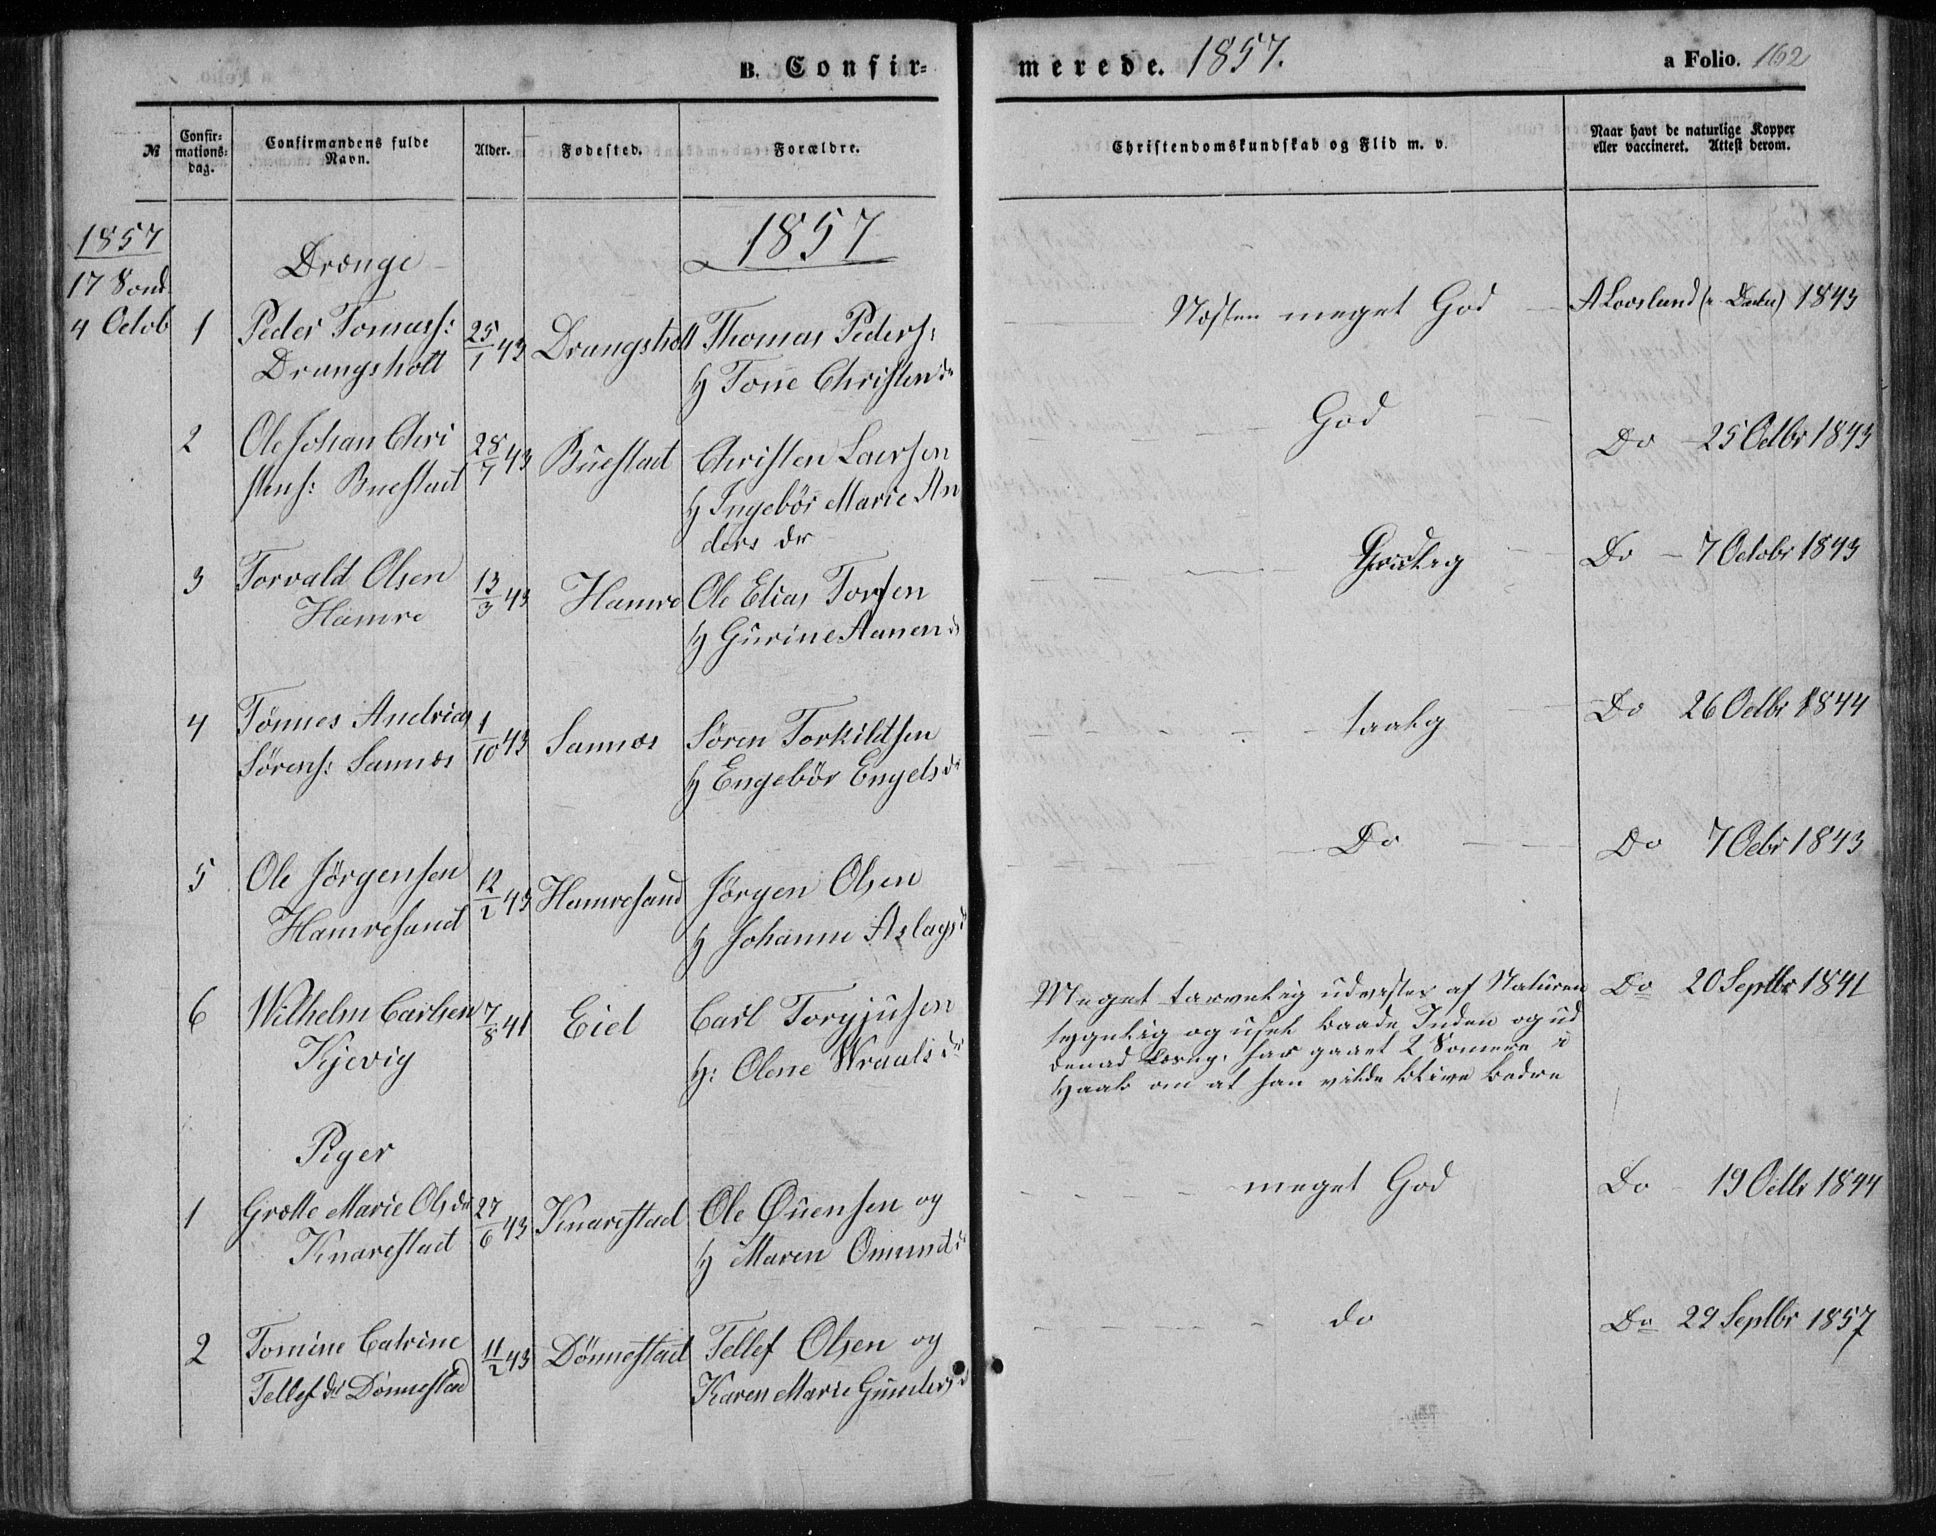 B. Confir-
merede. 1857.
a Folio. 162
№
Confir-
mations-
dag.
Confirmandens fulde
Navn.
Alder.
Fødested.
Forældre.
Christendomskundskab og Flid m. v.
Naar havt de naturlige Kopper
eller vaccineret. Attest derom.
1857
1857
17 Sond.
4 Octob
Drenge
1
Peder Tomass:
Drangsholt
25/1 43
Drangsholt
Thomas Peders:
H Tone Christen dr
Næsten meget God
A Loosland 1843
2
Ole Johan Chri
stens: Buestad
28/7 43
Buestad
Christen Larsen
H Ingebør Marie An
ders dr
God
Do 25 Octbr 1843
3
Torvald Olsen
Hamre
13/3 43
Hamre
Ole Elias Torsen
H Gurine Aanen dr
Do 7 Octobr 1843
4
Tønnes Andrias
Sørens: Sannes
1/10 43
Sannes
Søren Torkildsen
H Engebør Engels dr
taalig
Do 26 Octbr 1844
5
Ole Jørgensen
Hamresand
12/2 43
Hamresand
Jørgen Olsen
H Johanne Aslags dr
Do
Do 7 Octbr 1843
6
Wilhelm Carlsen
Kjevig
7/8 41
Eiel
Carl Torgjusen
H: Olene Wraals dr
Meget tarvelig udrustet af Naturen
sygelig og usel baade Inden og ud
har gaaet 2 Somere i
Haab om at han vilde blive bedre
Do 20 Septbr 1841
Piger
1
Grætte Marie Ols dr
Knarestad
27/6 43
Knarestad
Ole Øuensen og
H Maren Omund dr
meget God
Do 19 Octbr 1844
2
Tomine Catrine
Tellef dr Dønnestad
11/2 43
Dønnestad
Tellef Olsen og
Karen Marie Gunders dr
do
Do 22 Septbr 1857